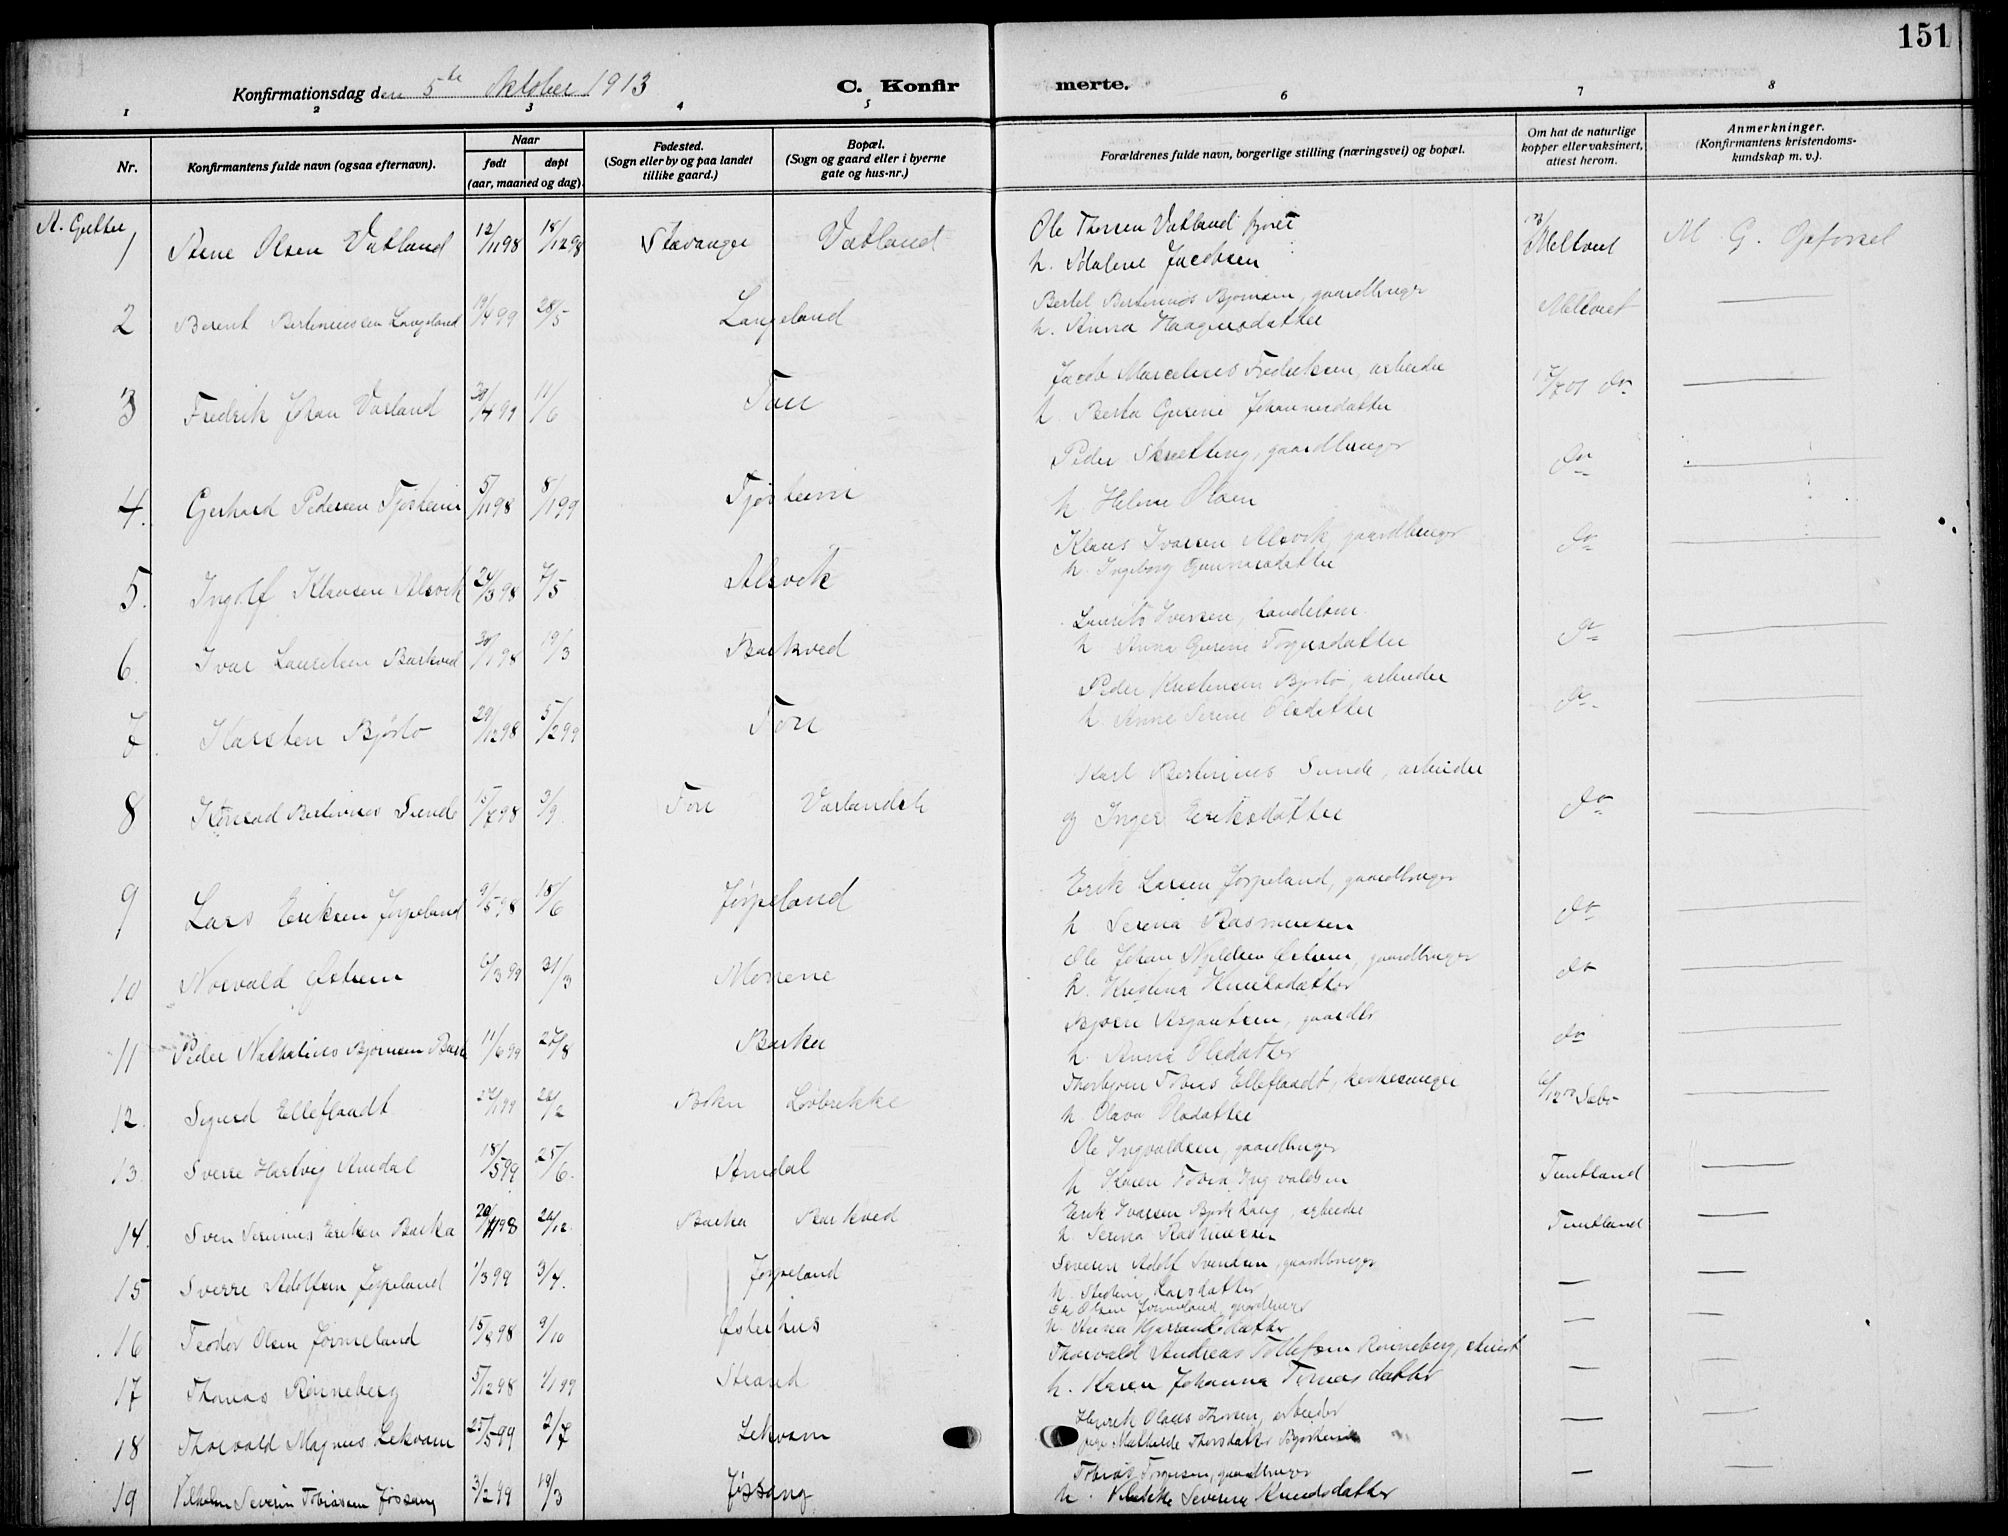 151
Konfirmationsdag den 5te Oktober 1913
C. Konfir merte.
1 2 3 4 5 6 7 8
Nr.
Konfirmantens fulde navn (ogsaa efternavn).
Naar
født døpt
(aar, maaned og dag).
Fødested.
(Sogn eller by og paa landet
tillike gaard.)
Bopæl.
(Sogn og gaard eller i byerne
gate og hus-nr.)
Forældrenes fulde navn, borgerlige stilling (næringsvei) og bopæl.
Om hat de naturlige
kopper eller vaksinert,
attest herom.
Anmerkninger.
(Konfirmantens kristendoms-
kundskap m. v.).
A. Gutter
1 Arne Olsen Vatland 12/11 98 18/12 98 Stavanger Vatland
Ole Thorsen Vatland
h. Malene Jacobsen
Meltveit M. G. Opførsel
2 Berent Bertinussen Langeland 19/4 99 28/5 Langeland
Bertel Bertinius Bjørnsen, gaardbruger
h. Anna Haagensdatter
Meltveit
3 Fredrik Johan Varland 30/4 99 11/6 Tou
Jacob Marcelius Fredriksen, arbeider
h. Berta Gurine Johannesdatter
do
4. Gerhard Pedersen Tjøstheim 5/11 98 8/1 99 Tjøstheim
Peder Skrætting, gaardbruger
h. Helene Olsen
do
5. Ingolf Klausen Alsvik 24/3 98 7/5 Alsvik
Klaus Ivarsen Alsvik, gaardbruger
h. Ingeborg Gunnarsdatter
do
6. Ivar Lauritsen Barkved 30/1 98 19/3 Barkved
Laurits Iversen, handelsm.
h. Anna Gurine Torgersdatter
do
7 Karsten Bjørlo 29/12 98 5/2 99 Tou
Peder Kristensen Bjørlo, arbeider
h. Anne Serine Olsdatter
do
8 Konrad Bertinius Sunde 15/7 98 3/9 Tou Varlandsh
Karl Bertinius Sunde, arbeider
og Inger Eriksdatter
do
9 Lars Eriksen Jørpeland 9/5 98 18/6 Jørpeland
Erik Larsen Jørpeland, gaardbruger
h Serina Rasmussen
do
10 Norvald Østrem 6/3 99 31/3 Monene
Ole Johan Østrem, gaardbruger
h. Kristina Knutsdatter
do
11 Peder Nathalius Bjørnsen Barka 11/6 99 27/8 Barka
Bjørn Asgautsen, gaardbr
h. Anna Olsdatter
do
12. Sigurd Elleflaadt 27/1 99 26/2 Bokn Løvbrekke
Thorbjørn Tobias Elleflaadt, kirkesanger
h. Olava Olsdatter
13. Sverre Hartvig Amdal 18/5 99 25/6. Amdal
Ole Ingvaldsen, gaardbruger
h Karen Tobia Ingvaldsen
Tuntland
14. Sven Serinius Eriksen Barka 20/11 98 26/12. Barka Barkved
Erik Ivarsen Bjørkhaug, arbeider
h. Serina Rasmussen
Tuntland
15 Sverre Adolfsen Jørpeland 1/3 99 3/4. Jørpeland
Severin Adolf Svendsen, gaardbruger
h. Larsdatter
16 Teodor Olsen Jørmeland 15/8 98 9/10 Østerhus
Ole Olsen Jørmeland, gaardbruger
h. Anna
17 Thomas Rønneberg 5/12 98 1/1 99 Strand
Thorvald Andreas Tollefsen Rønneberg,
h. Karen Johanna Tomasdatter
18 Thorvald Magnus Lekvam 25/5 99 2/7 Lekvam
Henrik Olaus Thorsen, arbeider
pige Mathilde Thorsdatter Bjørheim
19 Vilhelm Severin Tobiassen Jøssang 3/2 99 19/3 Jøssang
Tobias Torgersen, gaardbruger
h. Severine Knudsdatter